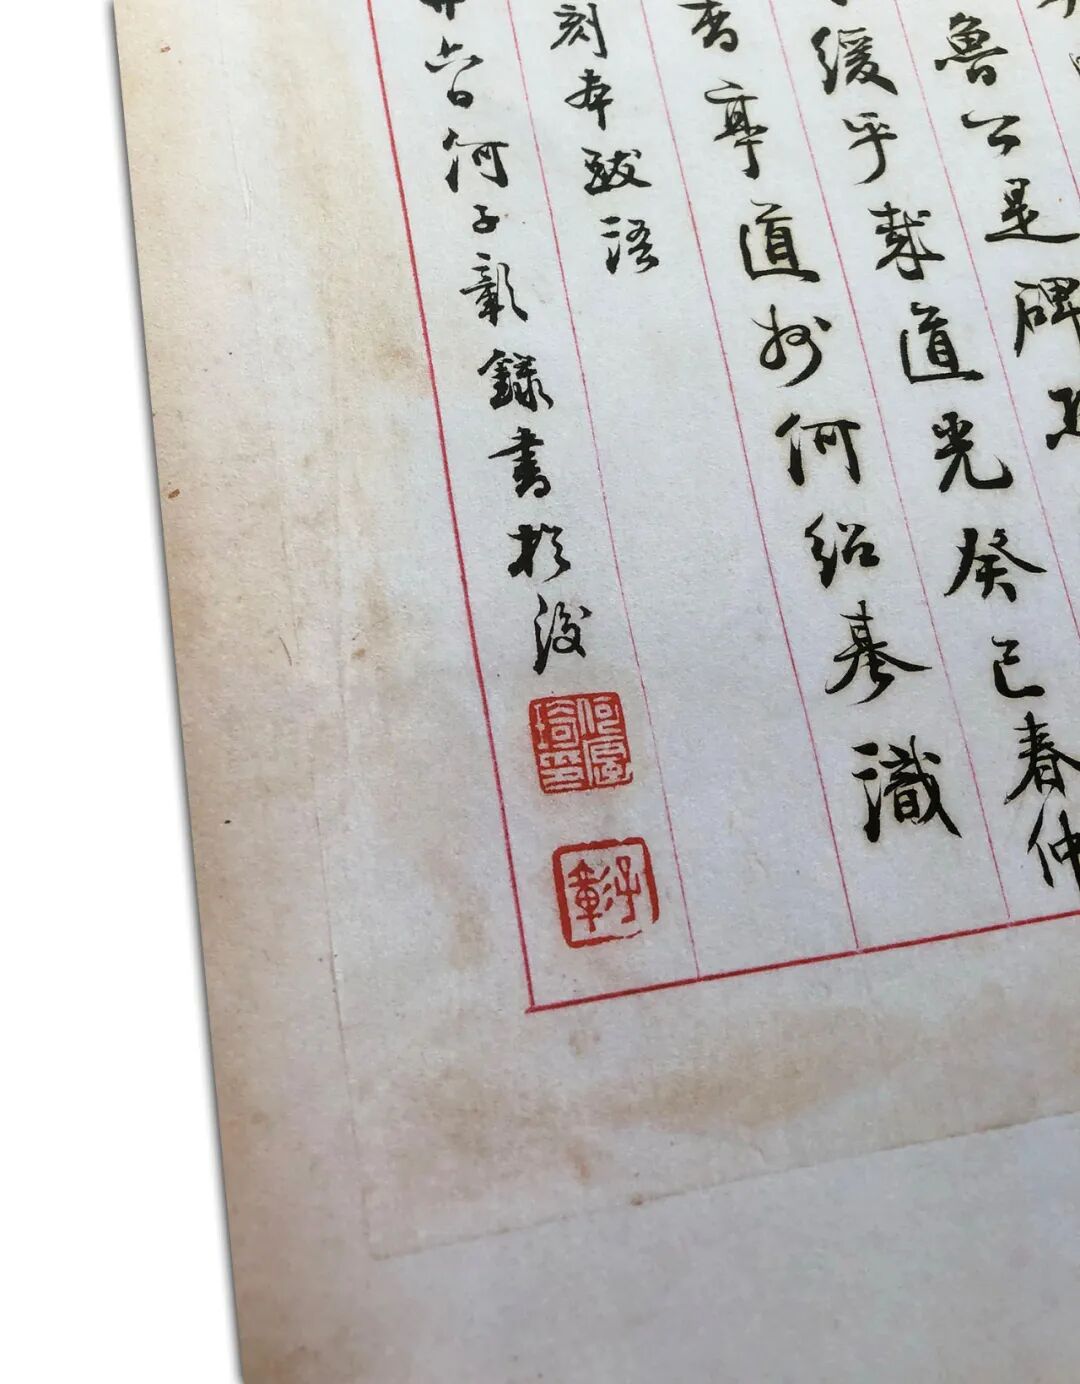 魯公是碑
緩乎哉道光癸巳春仲
亭道州何紹基識
刻本跋語
廿六日何子彰錄書於後
子彰